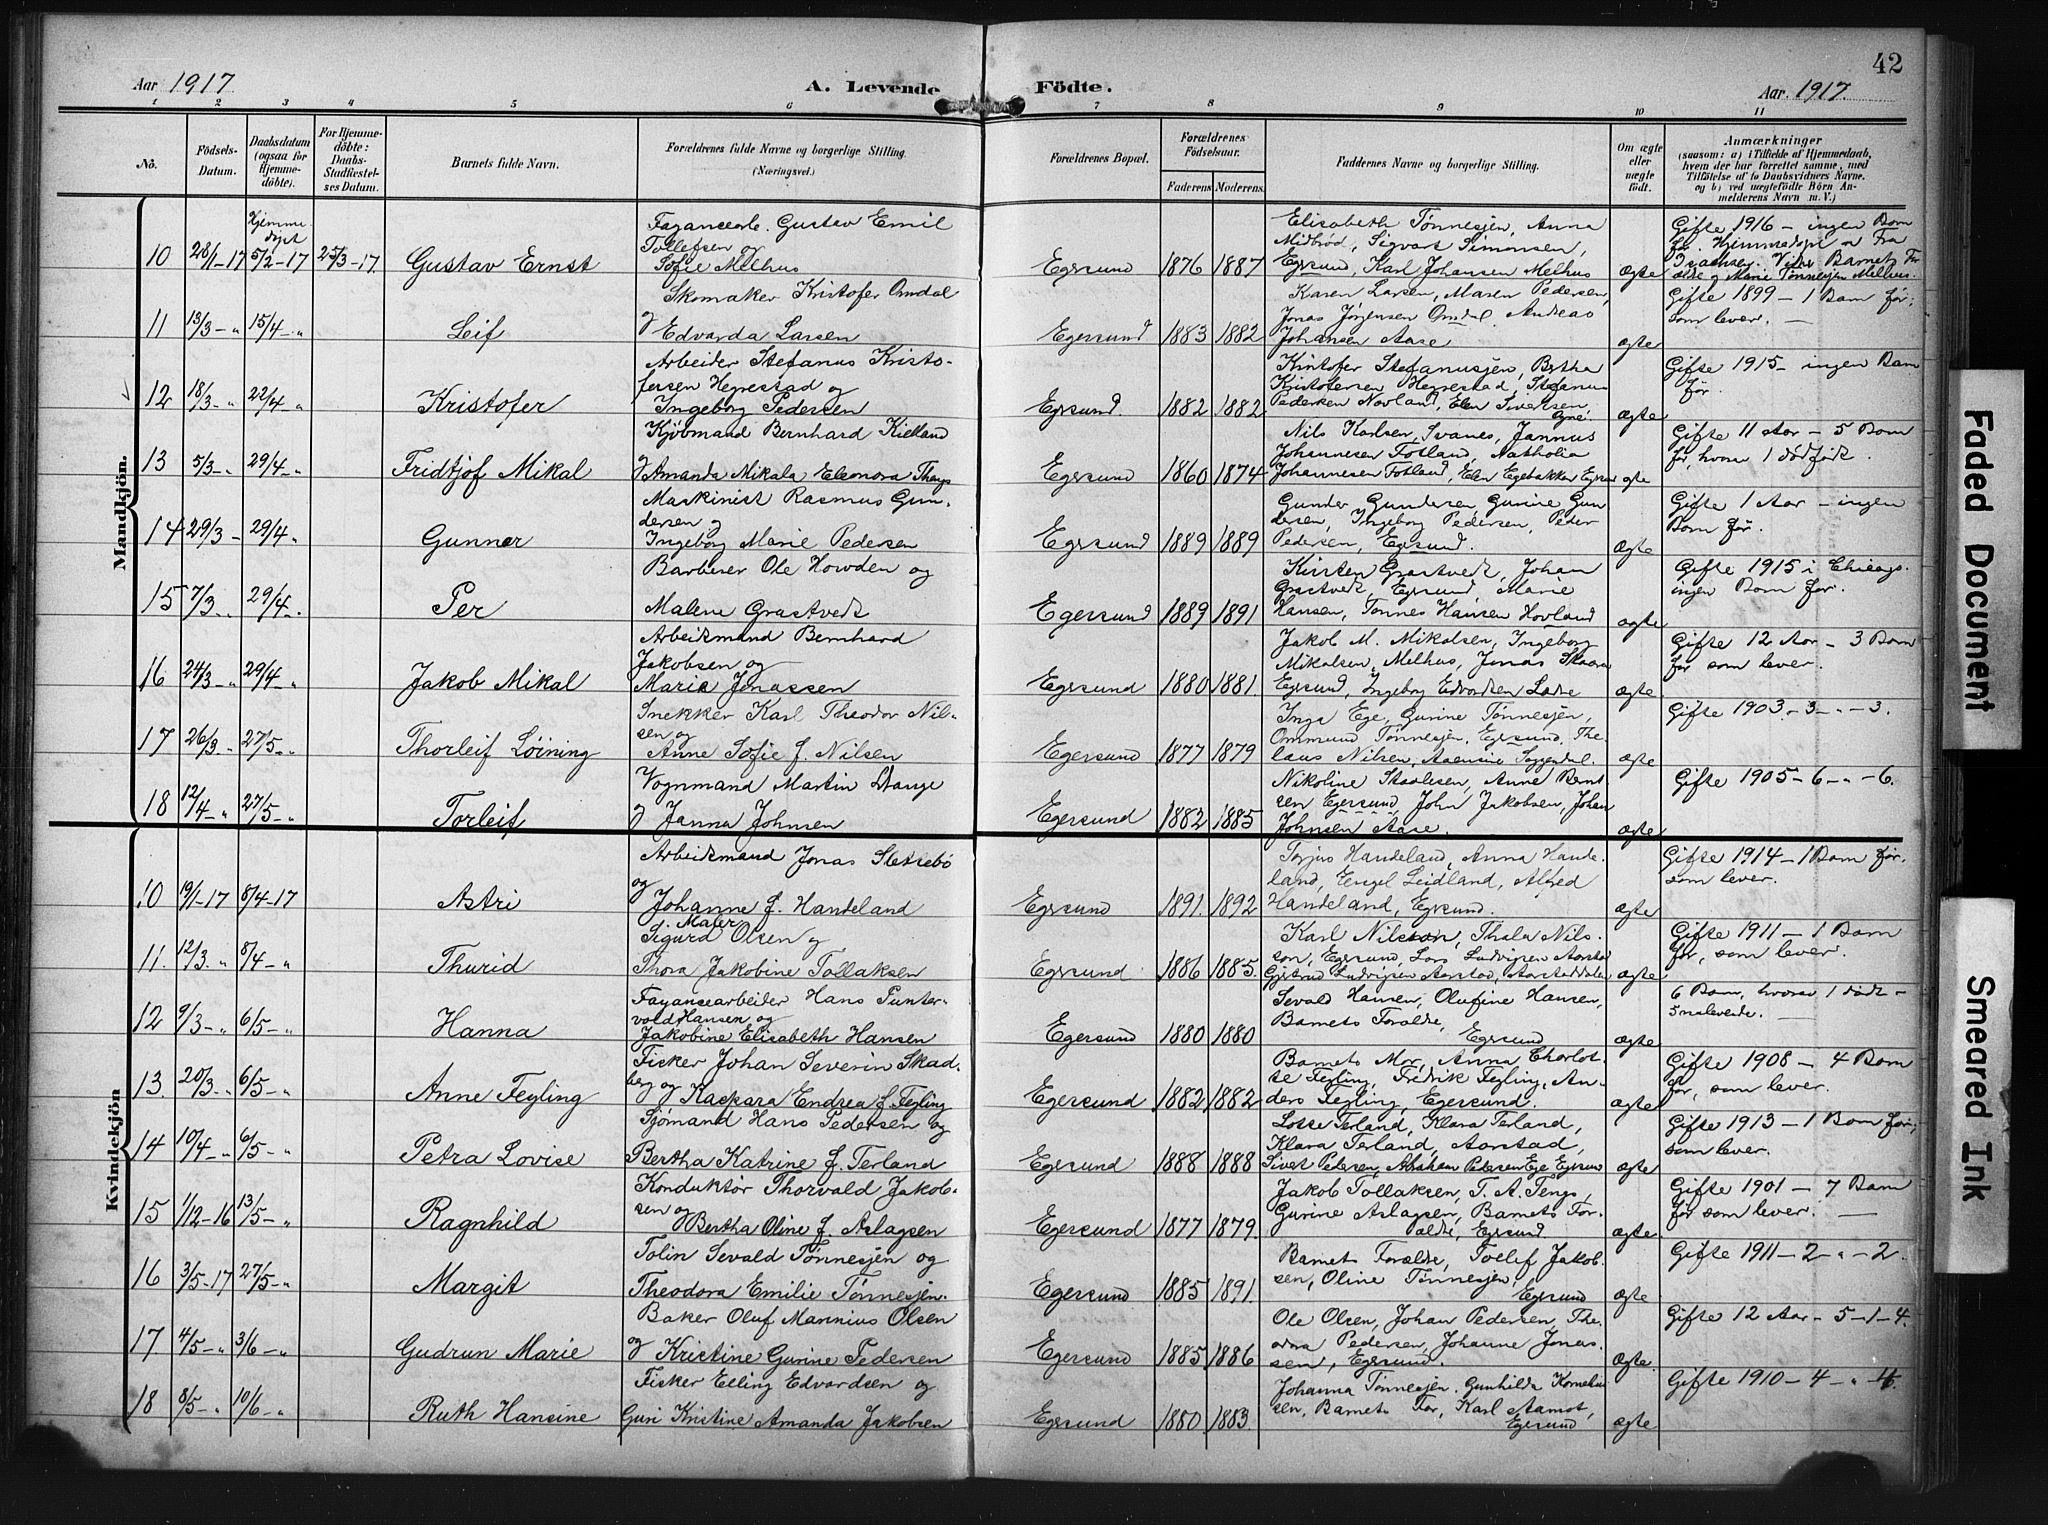 42
Aar 1917
A. Levende Födte.
Aar. 1917.
1 2 3 4 5 6 7 8 9 10 11
Nô.
Födsels-Datum.
Daabsdatum (ogsaa for Hjemme-döbte).
For Hjemme-döbte: Daabs-Stadfæstel-ses Datum.
Barnets fulde Navn.
Forældrenes fulde Navne og borgerlige Stilling. (Næringsvei.)
Forældrenes Bopæl.
Forældrenes Födselsaar.
Faderens. Moderens.
Faddernes Navne og borgerlige Stilling.
Om ægte eller uægte födt.
Anmærkninger
(saasom: a) i Tilfælde af Hjemmedaab,
hvem der har forrettet samme, med
Tilföielse af to Daabsvidners Navne.
og b) ved uægtefödte Börn An-
melderens Navn m. V.)
Mandkjön.
Hjemme
döpt
10 28/1-17 5/2-17 25/3-17. Gustav Ernst
Fayancearb. Gustav Emil
Tollefsen og
Sofie Melhus
Egersund 1876 1887
Elisabeth Tønnesjen, Anna
Midbrød, Sigvart Simonsen,
Egrsund, Karl Johansen Melhus
ægte
Gifte 1916 - ingen Barn
før. Hjemmedøpt av Fra
Isachsen. Vidner Barnets For
ældre og Marie Tønnesjen Melhus.
11 13/3 - " 15/4 - " Leif
Skomaker Kristofer Omdal
og Edvarda Larsen
Egersund 1883 1882
Karen Larsen, Maren Pedersen,
Jonas Jørgensen Omdal, Andreas
Johansen Aase
ægte
Gifte 1899 - 1 Barn før,
som lever. —
12 18/3 - " 22/4 - " Kristofer
Arbeider Stefanus Kristo-
fersen Hegrestad og
Ingeborg Pedersen
Egrsund. 1882 1882
Kristofer Stefanusjen, Bertha
Kristofersen Hegrestad, Stefanus
Pedersen Novland, Elen Sivertsen,
Ogne.
ægte
Gifte 1915 - ingen Barn
før.
13 5/3 - " 29/4 - " Fridtjof Mikal
Kjøbmand Bernhard Kielland
og Amanda Mikala Eleonora Thengs
Egersund 1860 1874
Nils Karlsen, Svanes, Jannus
Johannesen Fotland, Nathalia
Johannesen Fotland, Elen Egebakken Egrsun
ægte
Gifte 11 Aar - 5 Barn
før, hvoraf 1 dødfødt.
14 29/3 - 29/4 " Gunnar
Maskinist Rasmus Gun-
dersen og
Ingeborg Marie Pedersen
Egersund 1889 1889
Gunder Gundersen, Gurine Gun
dersen, Ingeborg Pedersen, Peder
Pedersen, Egrsund.
ægte
Gifte 1 Aar - ingen
Barn før.
15 7/3 - " 29/4 - . Per
Barberer Ole Howden og
Malene Grastveit
Egersund 1889 1891
Kirsten Grastveit, Johan
Grastveit, Egrsund, Marie
Hansen, Tønnes Hansen Hovland
ægte
Gifte 1915 i Chicago.
ingen Barn før.
16 24/3 - " 29/4 - " Jakob Mikal
Arbeidsmand Bernhard
Jakobsen og
Marie Jonassen
Egrsund 1880 1881
Jakob M. Mikalsen, Ingeborg
Mikalsen, Melhus, Jonas Skaara
Egrsund, Ingeborg Edvardsen Ladre
ægte
Gifte 12 Aar - 3 Barn
før som lever.
17 26/3 - " 27/5 - " Thorleif Löining
Snekker Karl Theodor Nil-
sen og
Anne Sofie f. Nilsen
Egersund 1877 1879
Inga Ege, Gurine Tønnesjen,
Ommund Tønnesjen, Egrsund, The-
laus Nilsen, Aaensine Soggendal.
ægte
Gifte 1903 - 3 - " - 3.
18 12/4 - " 27/5 - " Torleif
Vognmand Martin Stange
og Janna Johnsen
Egersund 1882 1885
Nikoline Staalesen, Anne Bent
sen Egersund, John Jakobsen, Johan
Johnsen Aase.
ægte
Gifte 1905 - 6 - " - 6.
Kvindekjön
10 19/1-17 8/4-17 Astri
Arbeidsmand Jonas Sletsebö
og
Johanne f. Handeland
Egrsund 1891. 1892
Torjus Handeland, Anna Hande-
land, Engel Leidland, Alfred
Handeland, Egrsund.
ægte
Gifte 1914 - 1 Barn før.
som lever.
11. 12/3. " 8/4 - " Thurid
Maler
Sigurd Olsen og
Thora Jakobine Tollaksen
Egrsund 1886 1885.
Karl Nilsson, Thala Nils-
son, Egersund, Lars Ludvigsen Aarstad
Gjertrud Ludvigsen Aarstad, Aarstaddalen
ægte
Gifte 1911 - 1 Barn
før, som lever.
12 9/3 - " 6/5 - " Hanna
Fayancearbeider Hans Punter-
vold Hansen og
Jakobine Elisabeth Hansen
Egersund 1880 1880
Sevald Hansen, Olufine Hansen,
Barnets Forældre,
Egrsund
ægte
6 Barn, hvoraf 1 død -
5 nulevende. —
13. 20/3 - " 6/5 - " Anne Fegling
Fisker Johan Severin Skad-
berg og Kaspara Endrea f. Fegling
Egersund 1882 1882
Barnets Mor, Anna Charlot-
te Fegling, Fredrik Fegling, An-
ders Fegling, Egersund.
ægte
Gifte 1908 - 4 Barn
før, som lever.
14 10/4 - " 6/5 - " Petra Lovise
Sjømand Hans Pedersen og
Bertha Katrine f. Terland
Egersund 1888 1888
Lotte Terland, Klara Terland,
Klara Terland, Aarstad,
Sivert Pedersen, Abraham Pedersen Eye Egrsund
ægte
Gifte 1913 - 1 Barn før,
som lever.
15 1/12-16 13/5 - " Ragnhild
Konduktör Thorvald Jakob-
sen og
Bertha Oline f. Aslagsen
Egersund 1877 1879.
Jakob Tollaksen, T. A. Tengs,
Gurine Aslagsen, Barnets For-
ældre, Egrsund.
ægte.
Gifte 1901 - 7 Barn
før som lever. —
16 3/5-17 27/5 - " Margit
Tolin Sevald Tønnesjen og
Theodora Emilie Tønnesjen.
Egersund 1885 1891.
Barnets Forældre, Tollef Jakob-
sen, Oline Tønnesjen,
Egrsund
ægte
Gifte 1911 - 2 - " - 2.
17. 4/5 - " 3/6 - " Gudrun Marie
Baker Oluf Mannius Olsen
og Kristine Gurine Pedersen
Egersund 1885 1886
Ole Olsen, Johan Pedersen, The-
odora Pedersen, Johanne Jonas-
sen, Egersund.
ægte.
Gifte 12 Aar - 5 - 1 - 4.
18 8/5 - " 10/6 - " Ruth Hansine
Fisker Elling Edvardsen og
Guri Kristine Amanda Jakobsen
Egrsund 1880 1883.
Johanna Tønnesjen, Gunhilda Kornelius
sen, Barnets Far, Karl Aamot,
Egrsund
ægte
Gifte 1910 - 4 - " - 4.
Faded Document
Smeared Ink